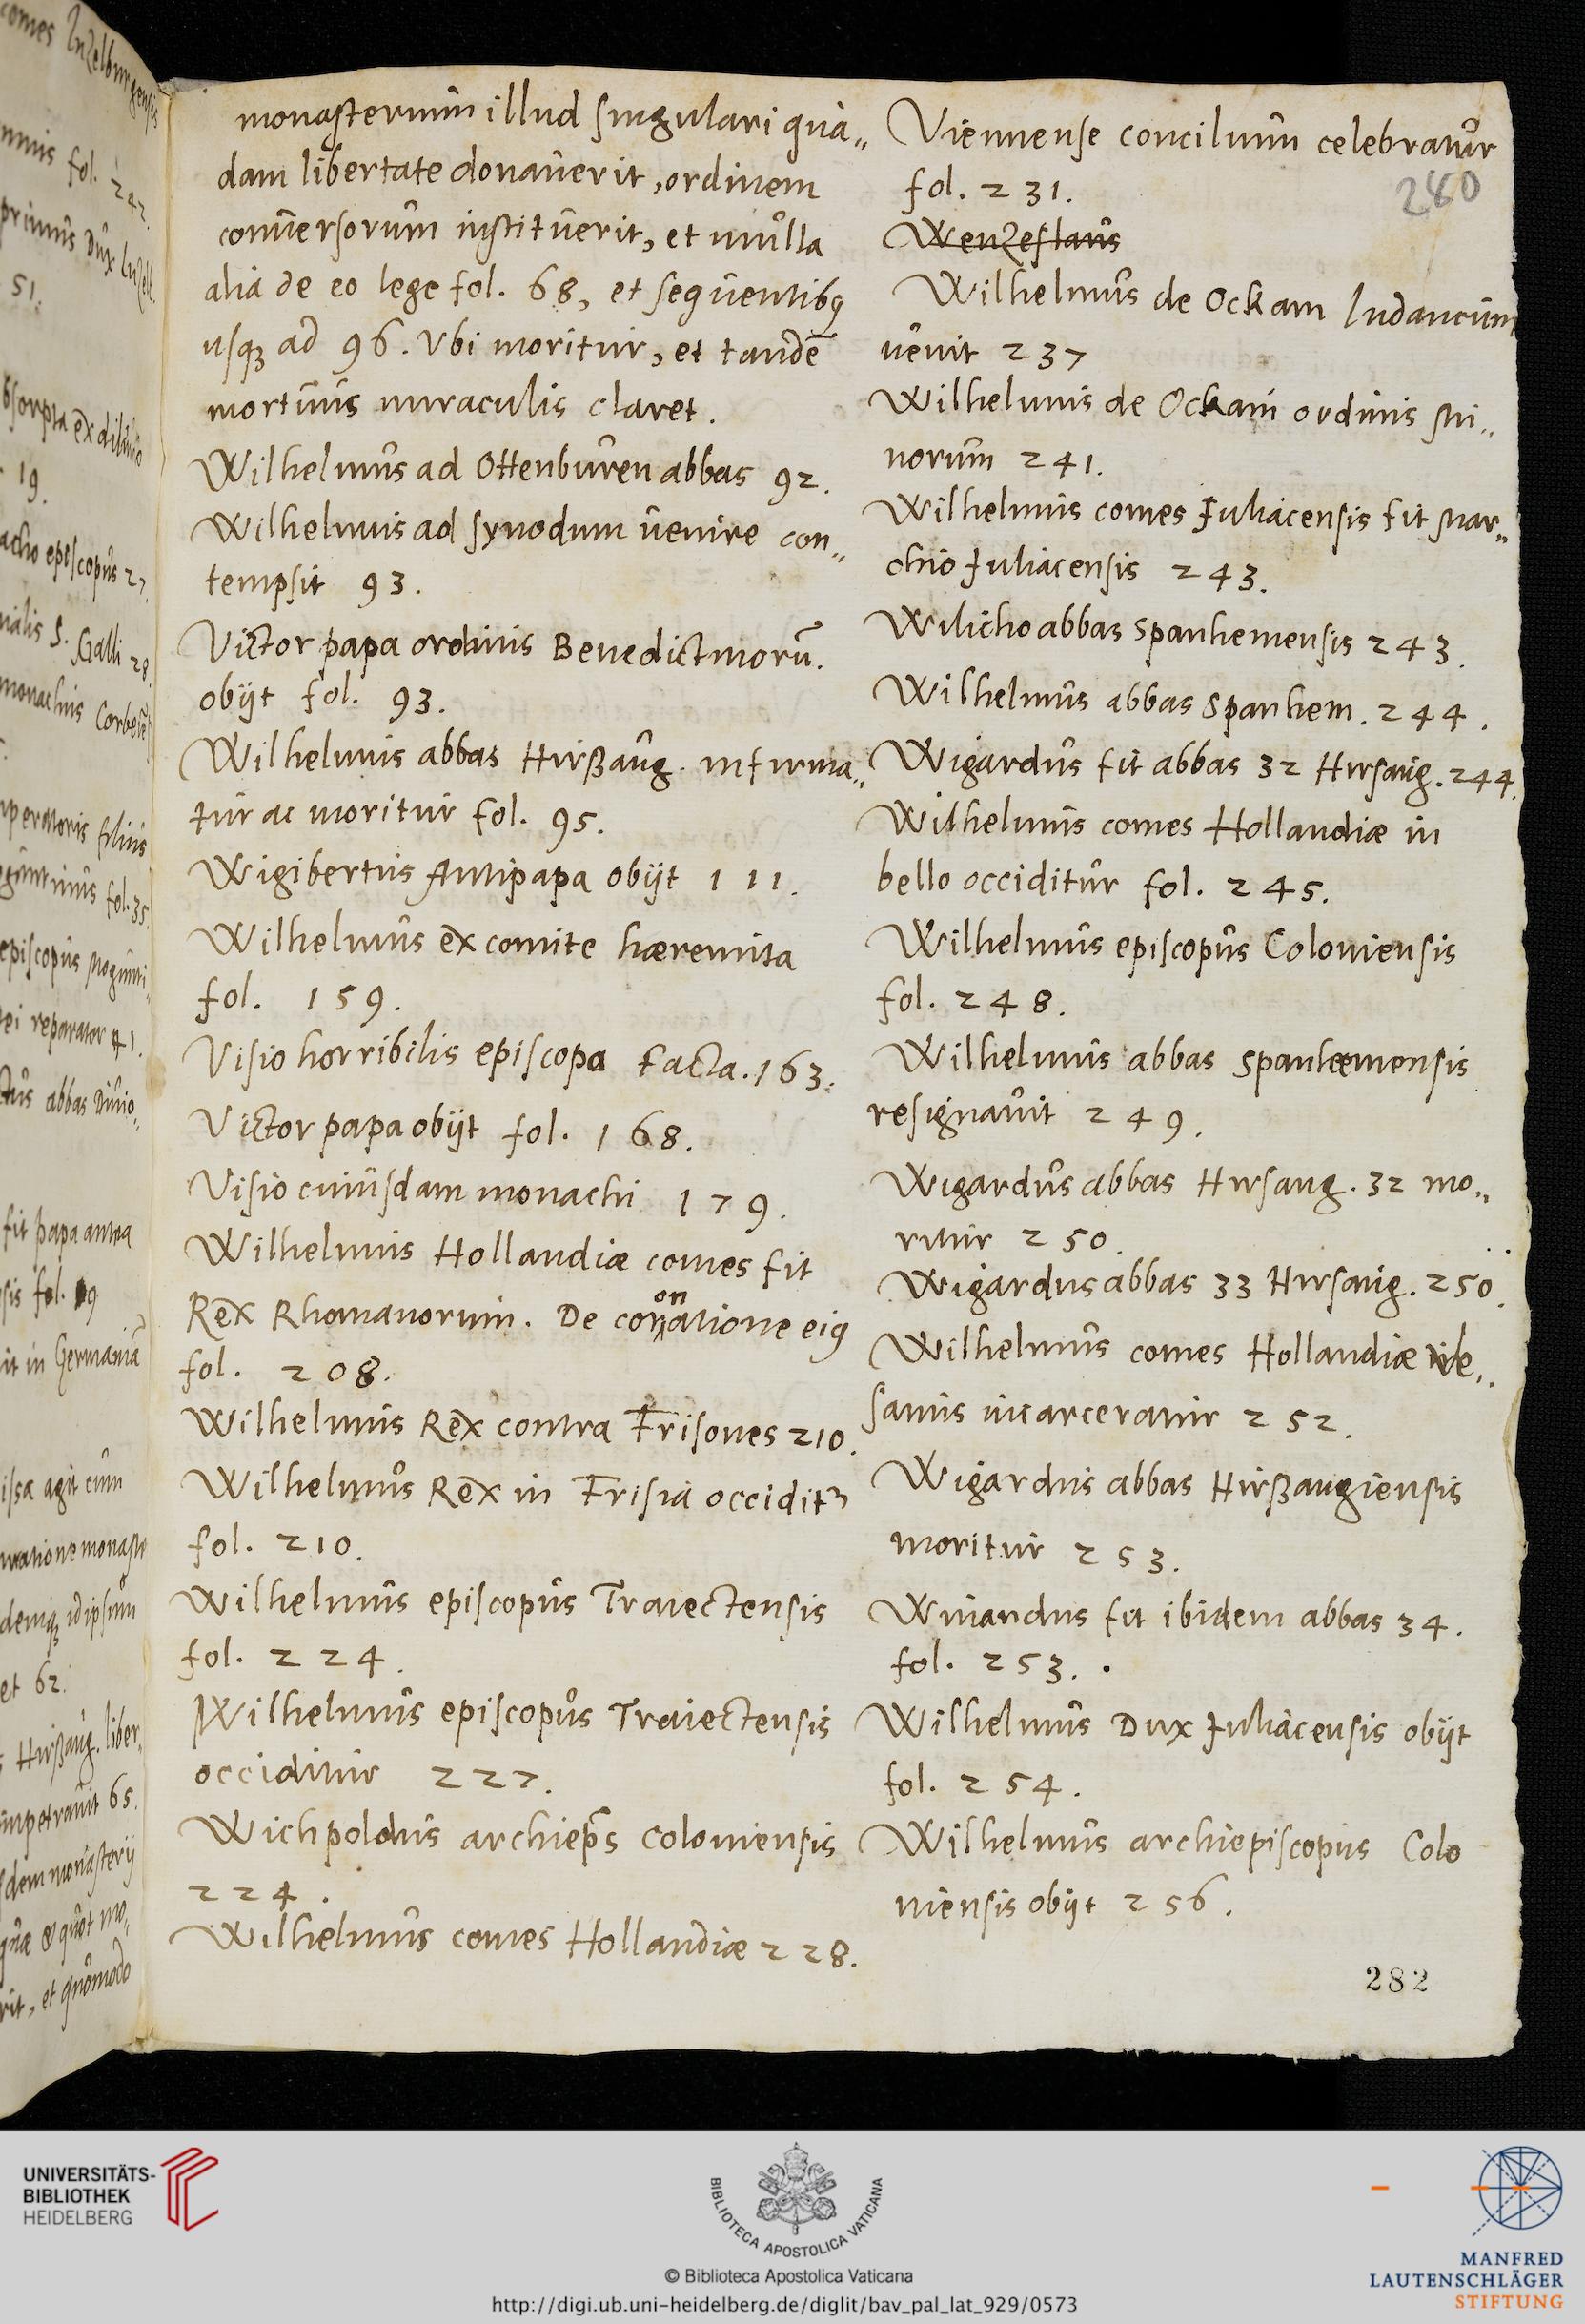 monasterium illud singulari qua„
dam libertate donauerit, ordinem
conuersorum instituerit, et mulla
alia de eo lege fol. 68, et sequentibꝰ
usqꝫ ad 96. Vbi moritur, et tandē
mortuus miraculis claret.
Wilhelmus ad Ottenburen abbas 92.
Wilhelmus ad synodum uenire con„
tempsit 93.
Victor papa ordinis Benedictinorū.
obijt fol. 93.
Wilhelmus abbas Hirßaug. infirma„
tur ac moritur fol. 95.
Wigibertus Antipapa obijt 111.
Wilhelmus ex comite hæremita
fol. 159.
Visio horribilis episcopo facta. 163.
Victor papa obijt fol. 168.
Visio cuiusdam monachi 179.
Wilhelmus Hollandiæ comes fit
Rex Rhomanorum. De coronatione eiꝰ
fol. 208.
Wilhelmus Rex contra Frisones 210.
Wilhelmus Rex in Frisia occidit᷑
fol. 210.
Wilhelmus episcopus Traiectensis
fol. 224.
Wilhelmus episcopus Traiectensis
occiditur 227.
Wichpoldus archiep̄s Coloniensis
224.
Wilhelmus comes Hollandiæ 228.
Viennense concilium celebratur
fol. 231.
280
Wenzeslaus
Wilhelmus de Ockam
uenit 237
Wilhelmus de Ockam ordinis Mi„
norum 241.
Wilhelmus comes Iuliacensis fit Mar„
chio Iuliacensis 243.
Wilicho abbas Spanhemensis 243.
Wilhelmus abbas Spanhem. 244.
Wigardus fit abbas 32 Hirsaug. 244.
Wilhelmus comes Hollandiæ in
bello occiditur fol. 245.
Wilhelmus episcopus Coloniensis
fol. 248.
Wilhelmus abbas Spanhemensis
resignauit 249.
Wigardus abbas Hirsaug. 32 mo„
ritur 250.
Wigardus abbas 33 Hirsaug. 250.
Wilhelmus comes Hollandiæ ue„
sanus incarceratur 252.
Wigardus abbas Hirßaugiensis
moritur 253.
Winandus fit ibidem abbas 34.
fol. 253.
Wilhelmus Dux Iuliacensis obijt
fol. 254.
Wilhelmus archiepiscopus Colo
niensis obijt 256.
282
UNIVERSITÄTS-
BIBLIOTHEK
HEIDELBERG
BIBLIOTECA APOSTOLICA VATICANA
© Biblioteca Apostolica Vaticana
http://digi.ub.uni-heidelberg.de/diglit/bav_pal_lat_929/0573
MANFRED
LAUTENSCHLÄGER
STIFTUNG